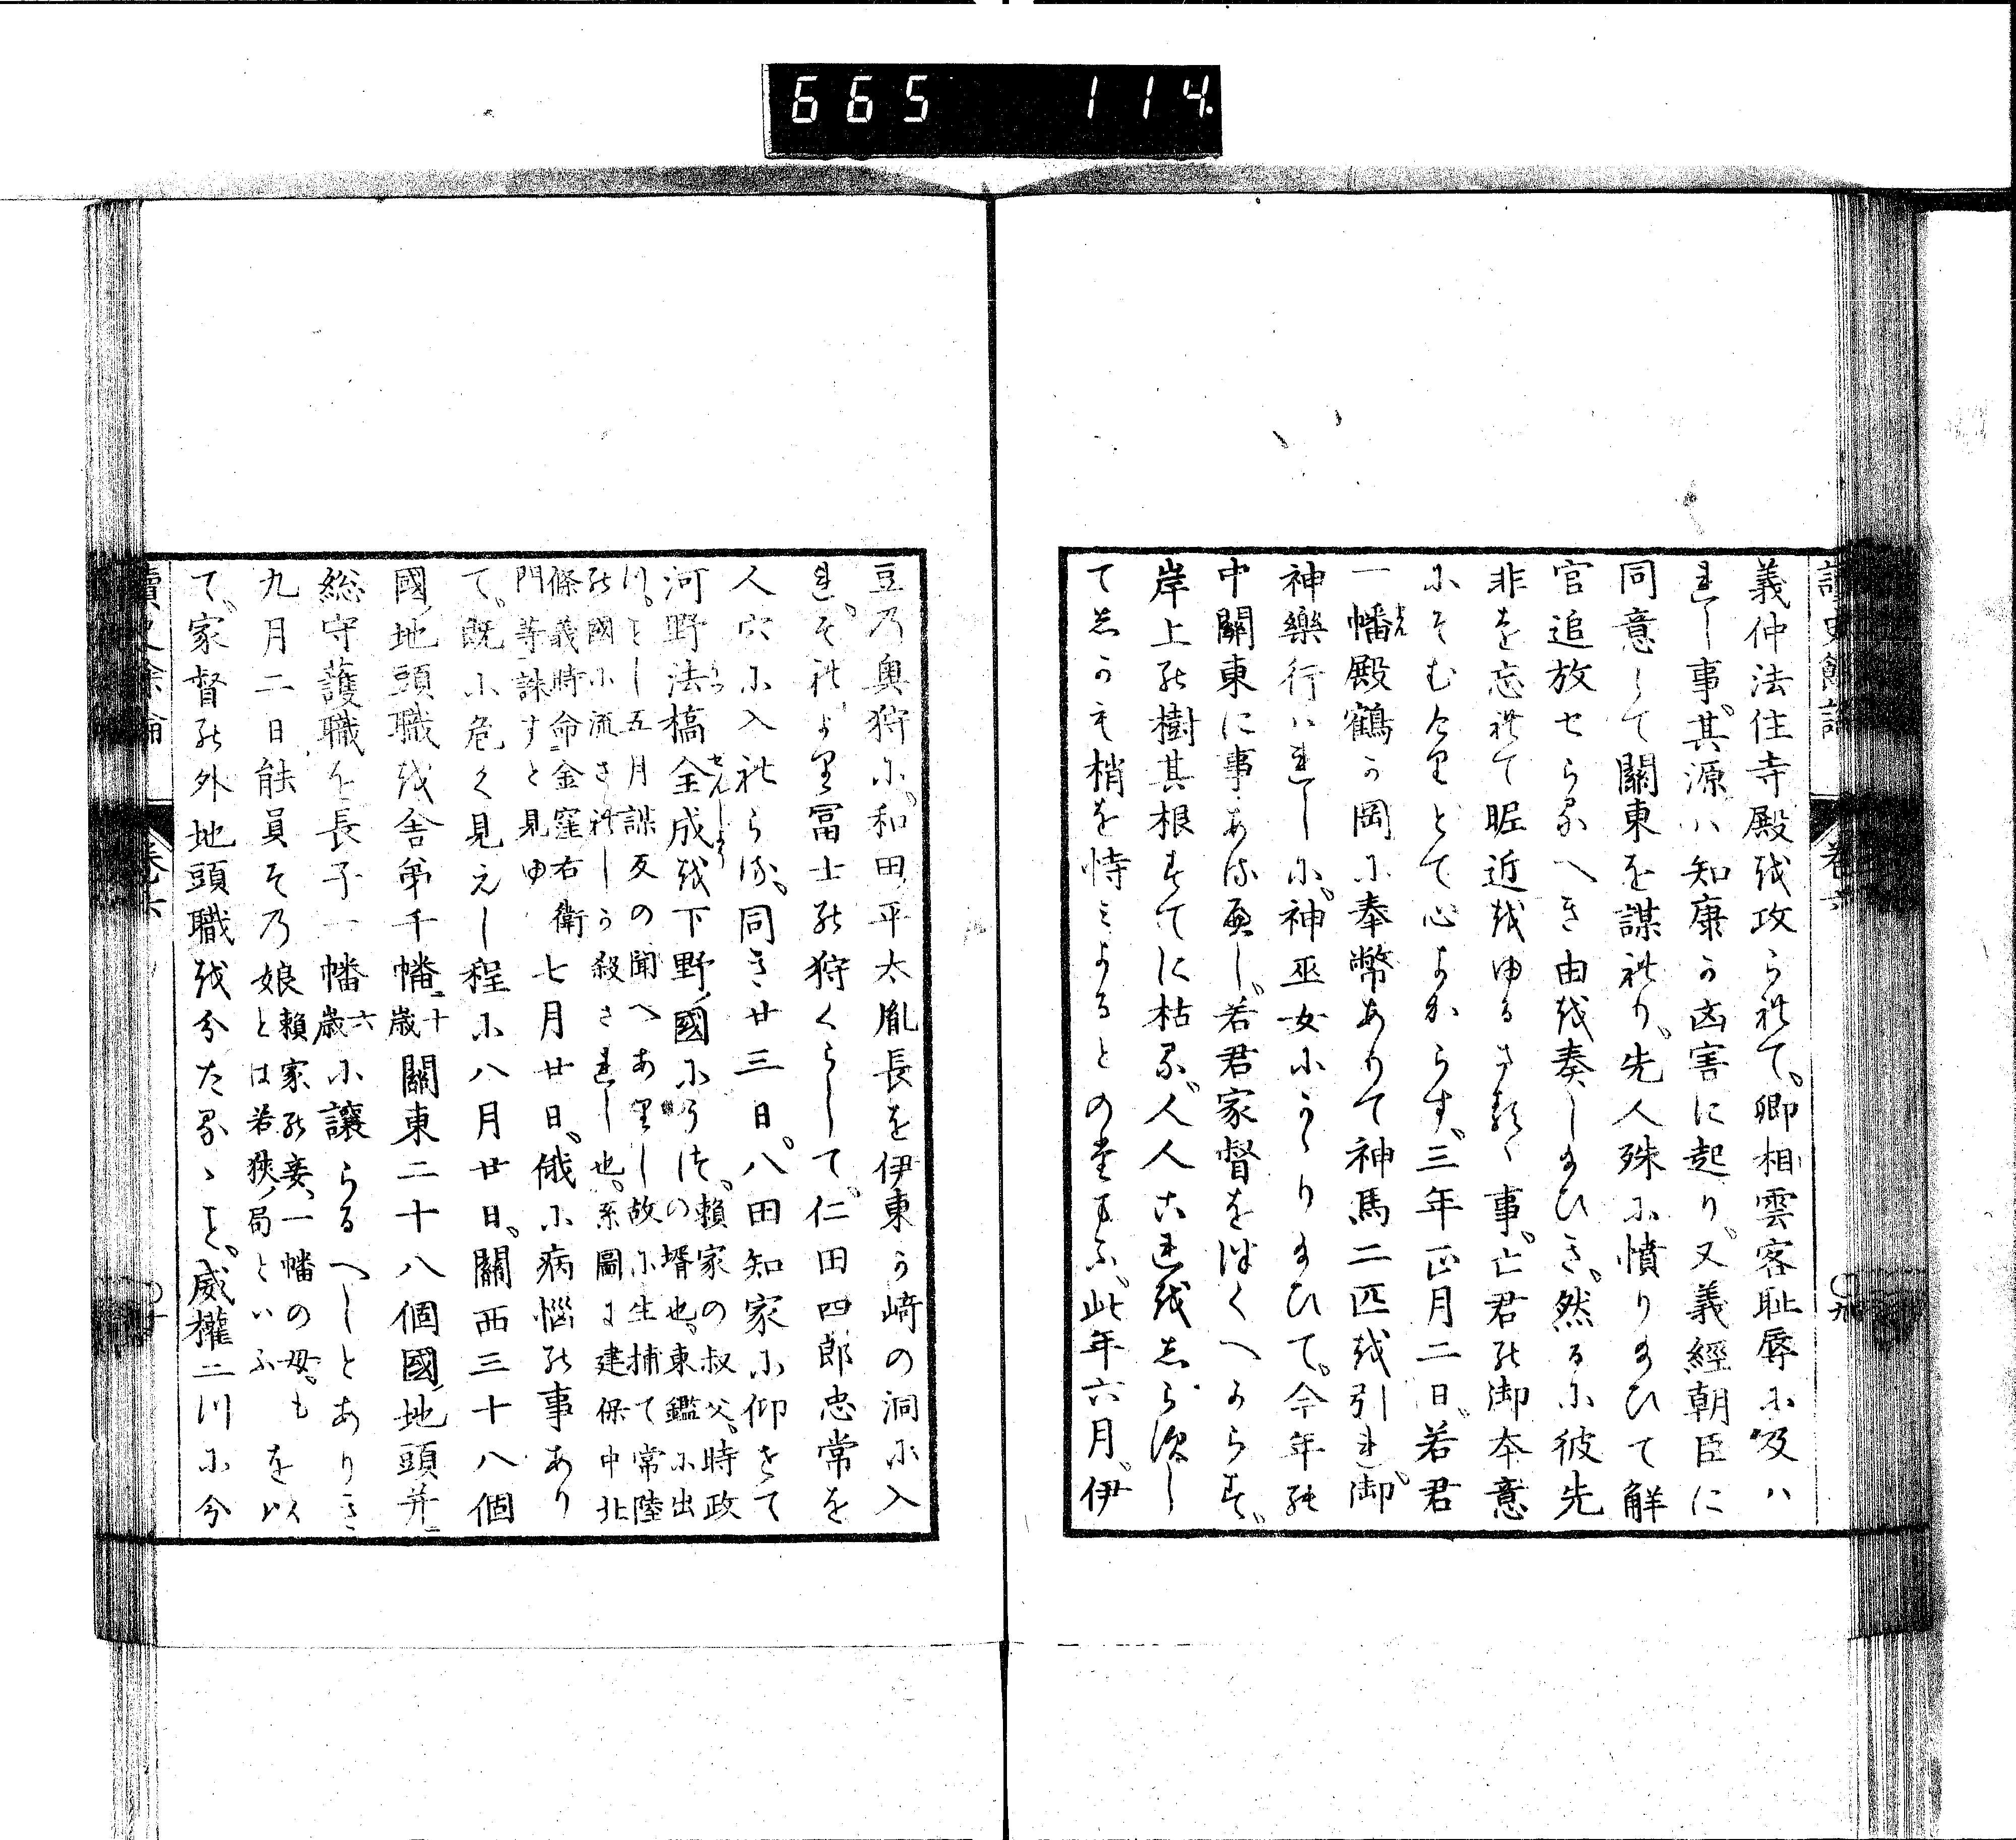 665 114.
讀史餘論 卷六 〇九
義仲法住寺殿を攻られて卿相雲客耻辱に及ハ
れし事其源ハ知康か凶害に起り又義經朝臣に
同意して關東を謀れり先人殊に憤り給ひて解
官追放せらるへき由を奏し給ひき然るに彼先
非を忘れて昵近をゆるさるゝ事亡君の御本意
にそむけりとて心よからす三年正月二日若君
一幡殿鶴か岡に奉幣ありて神馬二匹を引れ御
神樂行ハれしに神巫女にかゝり給ひて今年の
中關東に事あるへし若君家督をつくへからす
岸上の樹其根すてに枯る人人これをしらすし
て志かも梢を恃ミよるとの給ふ此年六月伊
豆乃奥狩に和田平太胤長を伊東か崎の洞に入
れそれより冨士の狩くらして仁田四郎忠常を
人穴に入れらる同き廿三日八田知家に仰せて
河野法橋全成を下野國にうつ頼家の叔父時政の壻也東鑑に出
つことし五月謀反の聞へありし故に生捕て常陸
の國に流されしか殺されし也系圖に建保中北
條義時命金窪右衛
門等誅すと見ゆ 七月廿日俄に病惱の事あり
て既に危く見えし程に八月廿日關西三十八個
國地頭職を舎弟千幡十歳關東二十八個國地頭并
総守護職を長子一幡六歳に讓らるへしとありき
九月二日能員その娘頼家の妾一幡の母もとは若狹局といふを以
て家督の外地頭職を分たるゝと威權二つに分
讀史餘論 卷六 〇十